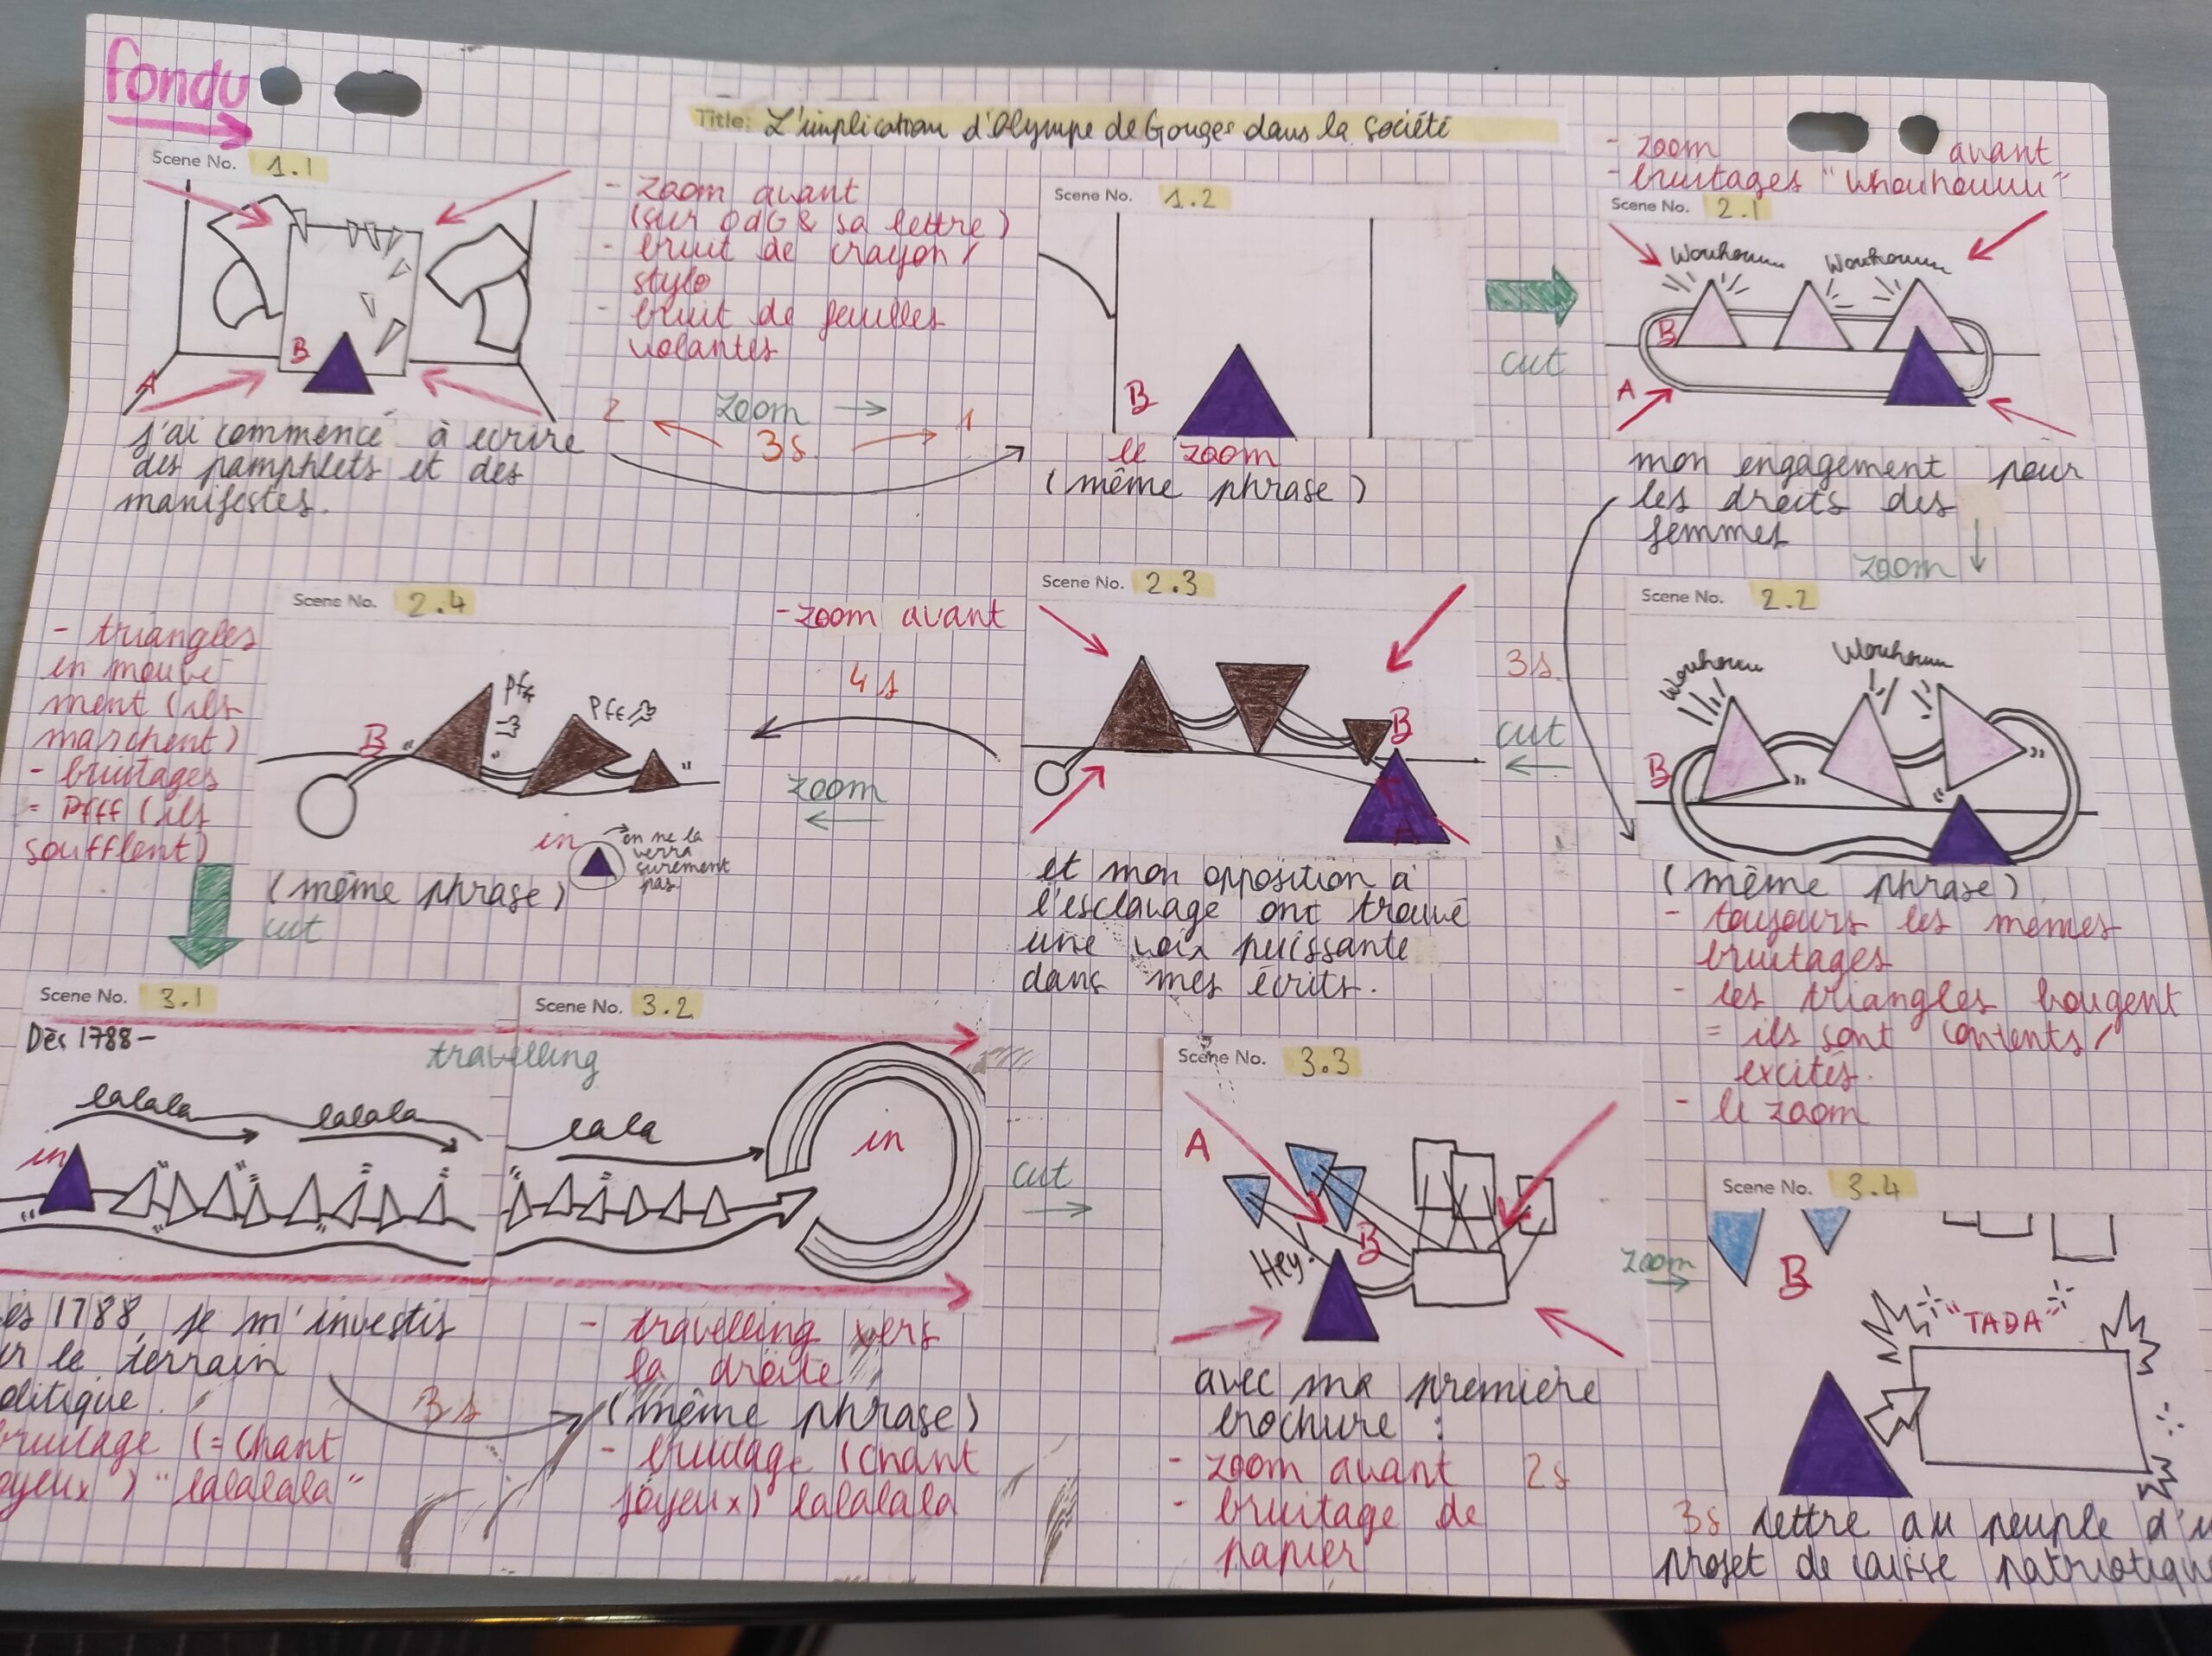 fondu
Title: L'implication d'Olympe de Gouges dans la société
Scene No. 1.1
B
A
j'ai commencé à écrire
des pamphlets et des
manifestes.
- zoom avant
(sur OdG & sa lettre)
- bruit de crayon /
stylo
- bruit de feuilles
volantes
zoom
2 3s 1
Scene No. 1.2
B
le zoom
(même phrase)
cut
- zoom avant
- bruitages "Whouhouuu"
Scene No. 2.1
Wouhouuu Wouhouuu
B
A
mon engagement pour
les droits des
femmes
zoom
Scene No. 2.2
Wouhouu Wouhouu
B
(même phrase)
- toujours les mêmes
bruitages
- les triangles bougent
= ils sont contents /
excités.
- le zoom
3s
cut
Scene No. 2.3
B
A
et mon opposition à
l'esclavage ont trouvé
une voix puissante
dans mes écrits.
- zoom avant
4s
zoom
Scene No. 2.4
Pff
Pff
B
in
on ne la
verra
surement
pas.
(même phrase)
- triangles
en mouve
ment (ils
marchent)
- bruitages
= Pfff (ils
soufflent)
cut
Scene No. 3.1
Dès 1788-
lalala lalala
in
travelling
ès 1788, je m'investis
r le terrain
olitique.
ruitage (= chant
oyeux) "lalalala"
3s
Scene No. 3.2
lala
in
- travelling vers
la droite
(même phrase)
- bruitage (chant
joyeux) lalalala
cut
Scene No. 3.3
A
B
Hey!
avec ma première
brochure :
- zoom avant 2s
- bruitage de
papier
zoom
Scene No. 3.4
B
"TADA"
3s Lettre au peuple d'u
projet de caisse patriotiqu